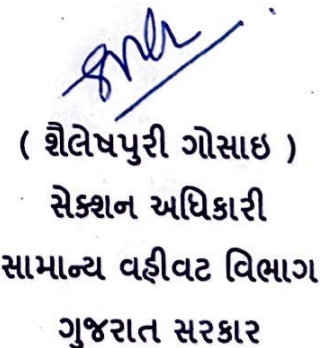 ( શૈલેષપુરી ગોસાઇ )
સેક્શન અધિકારી
સામાન્ય વહીવટ વિભાગ
ગુજરાત સરકાર